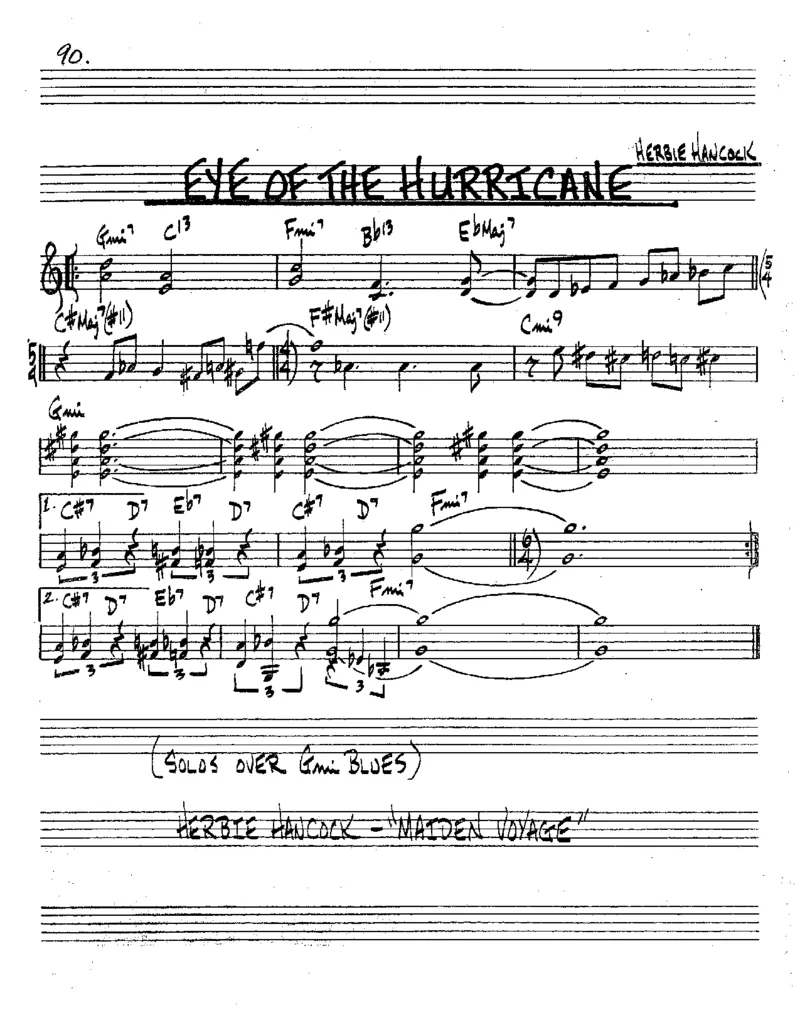 90.
HERBIE HANCOCK
EYE OF THE HURRICANE
Gmi7 C13 Fmi7 Bb13 EbMaj7
5/4
C#Maj7(#11) F#Maj7(#11) Cmi9
5/4 4/4
Gmi
1. C#7 D7 Eb7 D7 C#7 D7 Fmi7
3 3 3 6/4
2. C#7 D7 Eb7 D7 C#7 D7 Fmi7
3 3 3 3
(SOLOS OVER Gmi BLUES)
HERBIE HANCOCK - "MAIDEN VOYAGE"